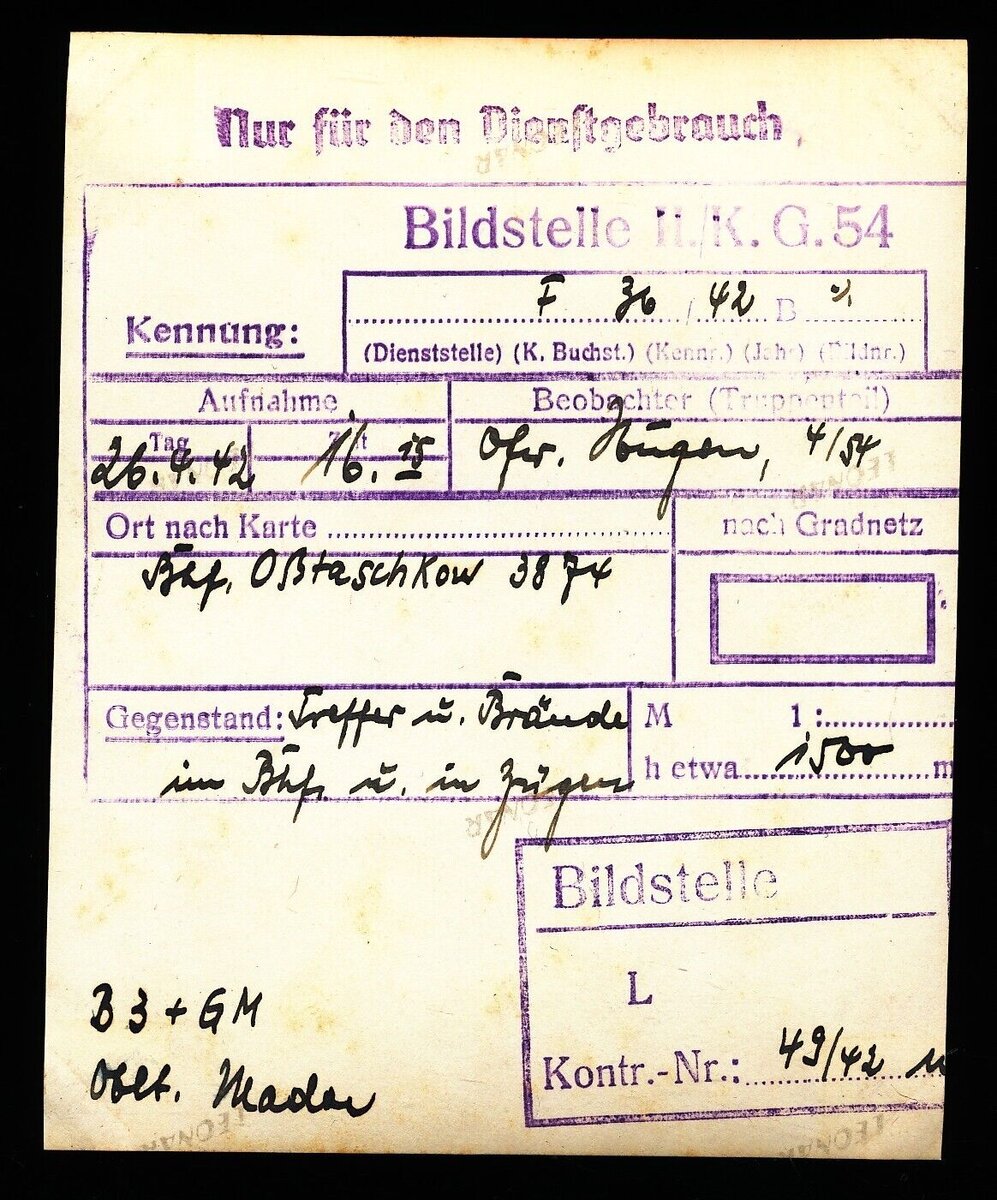 Nur für den Dienstgebrauch
Bildstelle II./K. G. 54
Kennung:
F 36 / 42 B
(Dienststelle) (K. Buchst.) (Kennr.) (Jahr) (Bildnr.)
Aufnahme
Beobachter (Truppenteil)
Tag Zeit
26.4.42 16.15
Ofw. Hügen, 4/54
Ort nach Karte
nach Gradnetz
Bhf. Oßtaschkow 3874
Gegenstand: Treffer u. Brände
im Bhf. u. in Zügen
M 1:
h etwa 1500 m
Bildstelle
L
Kontr.-Nr.: 49/42
B 3 + GM
Oblt. Mader
LEONAR
LEONAR
LEONAR
LEONAR
LEONAR